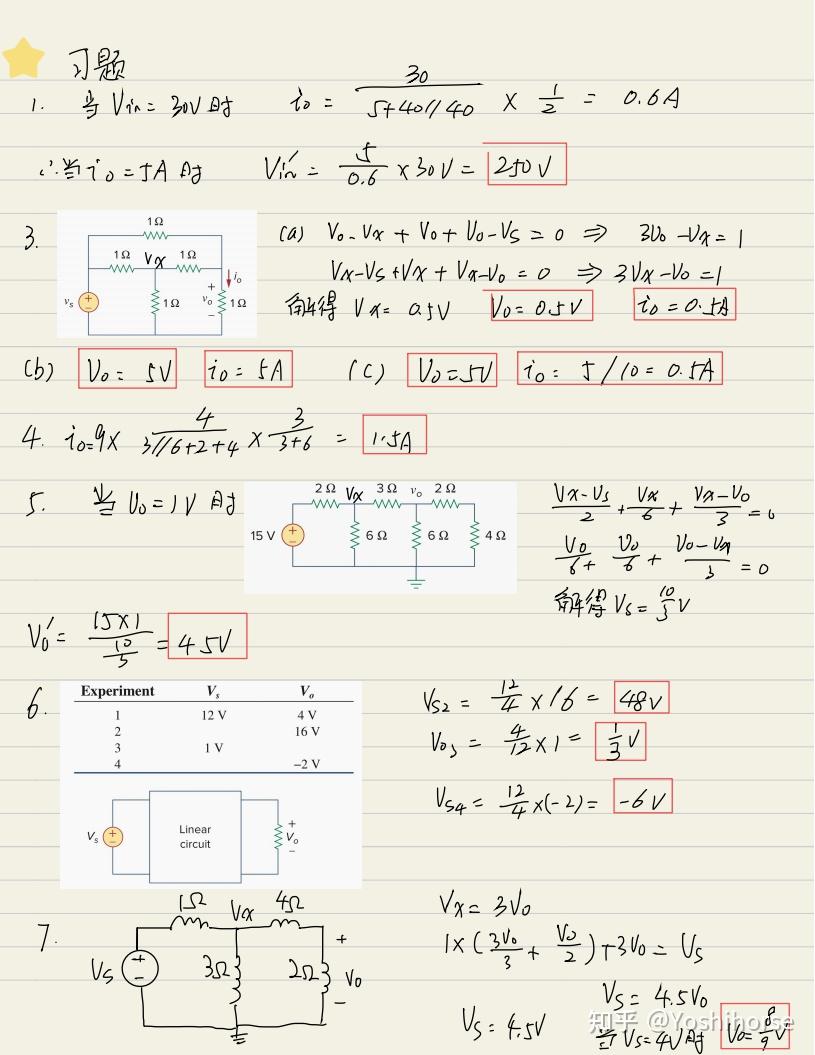 习题
1. 当 Vin = 30V 时 i₀ = 30/(5+40//40) × 1/2 = 0.6A
∴当 i₀ = 5A 时 Vin' = 5/0.6 × 30V = 250V
3.
1Ω
1Ω Vx 1Ω
vs + − 1Ω + vo − 1Ω io
(a) V₀-Vx + V₀ + V₀-Vs = 0 ⇒ 3V₀-Vx = 1
Vx-Vs+Vx + Vx-V₀ = 0 ⇒ 3Vx-V₀ = 1
解得 Vx = 0.5V V₀ = 0.5V i₀ = 0.5A
(b) V₀ = 5V i₀ = 5A (c) V₀ = 5V i₀ = 5/10 = 0.5A
4. i₀=9× 4/(3//6+2+4) × 3/(3+6) = 1.5A
5. 当 V₀ = 1V 时
2Ω Vx 3Ω vo 2Ω
15 V + − 6Ω 6Ω 4Ω
(Vx-Vs)/2 + Vx/6 + (Vx-V₀)/3 = 0
V₀/6 + V₀/6 + (V₀-Vx)/3 = 0
解得 Vs = 10/3 V
V₀' = (15×1)/(10/3) = 4.5V
6.
Experiment Vs Vo
1 12 V 4 V
2 16 V
3 1 V
4 −2 V
Vs + − Linear circuit + Vo −
Vs2 = 12/4 × 16 = 48V
Vo3 = 4/12 × 1 = 1/3 V
Vs4 = 12/4 ×(-2) = -6V
7.
1Ω Vx 4Ω
Vs + − 3Ω 2Ω + V₀ −
Vx = 3V₀
1×(3V₀/3 + V₀/2) + 3V₀ = Vs
Vs = 4.5V₀
Vs = 4.5V 当 Vs = 4V 时 V₀ = 8/9 V
知乎 @Yoshihorse